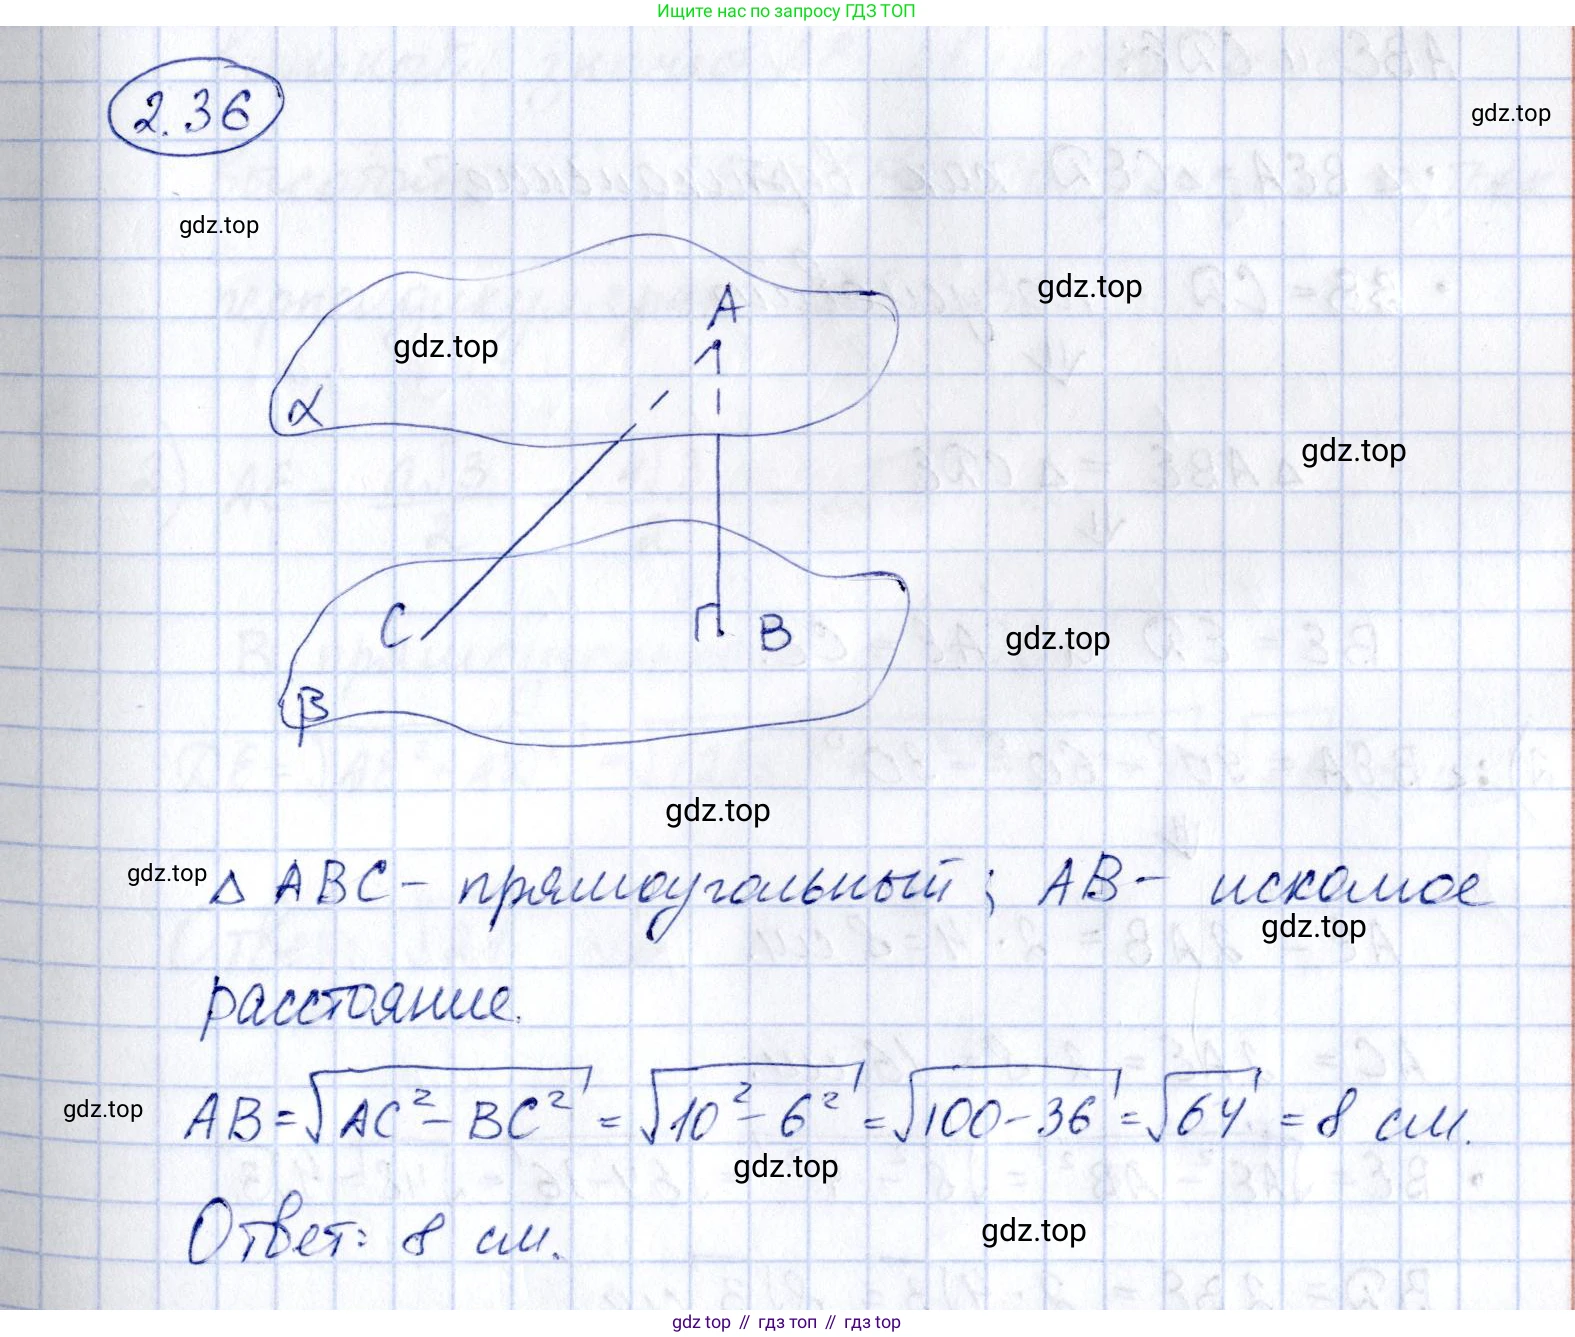 Ищите нас по запросу ГДЗ ТОП
2.36
gdz.top
gdz.top
gdz.top
A
gdz.top
α
gdz.top
C
B
gdz.top
β
gdz.top
gdz.top
Δ ABC - прямоугольный; AB - искомое
gdz.top
расстояние.
AB = √AC² - BC² = √10² - 6² = √100 - 36 = √64 = 8 см.
gdz.top
gdz.top
Ответ: 8 см.
gdz.top
gdz top // гдз топ // gdz top